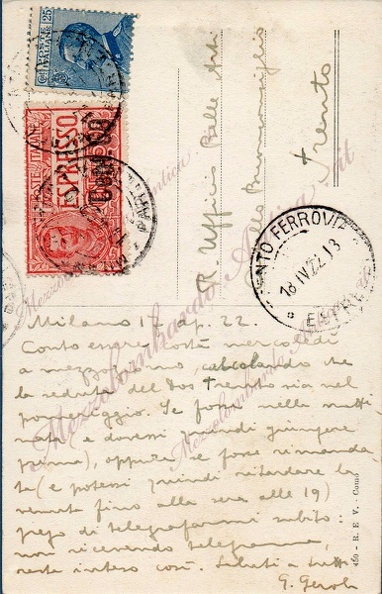 POSTE ITALIANE
25
ESPRESSO
R. Ufficio Belle Arti
Buonconsiglio
Trento
TRENTO FERROVIA
18 IV 22 13
Milano 17 ap. 22.
Conto essere costà mercoledì
a mezzogiorno, calcolando che
la seduta del Dos Trento sia nel
pomeriggio. Se fosse nella matti
nata e dovessi quindi giungere
prima, oppure se fosse rimanda
ta (e potessi quindi ritardare la
venuta fino alla sera alle 19)
prego di telegrafarmi subito:
non ricevendo telegramma,
resta inteso così. Saluti a tutti
G. Gerola
450 - R. E V. - Como
Mezzolombardo
Mezzolombardo